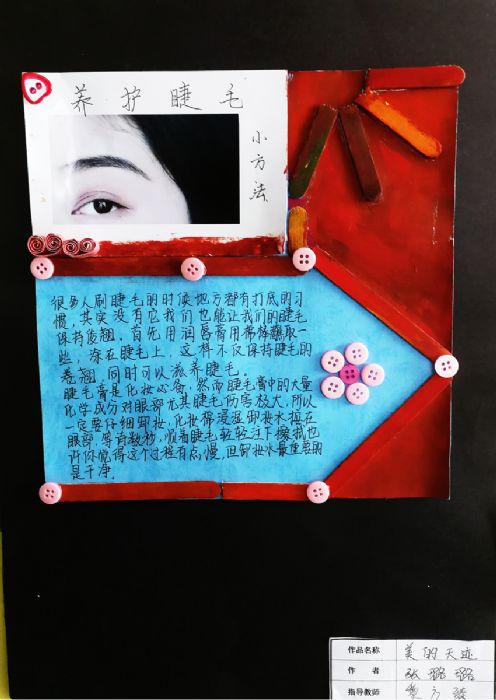 养护睫毛
小方法
很多人刷睫毛的时候地方都有打底的习
惯,其实没有它我们也能让我们的睫毛
保持卷翘,首先用润唇膏用棉棒蘸取一
些,涂在睫毛上,这样不仅保持睫毛的
卷翘,同时可以滋养睫毛。
睫毛膏是化妆必备,然而睫毛膏中的大量
化学成分对眼部尤其睫毛伤害放大,所以
一定要仔细卸妆,化妆棉浸湿卸妆水捂在
眼部,等待数秒,顺着睫毛轻轻往下擦拭也
许你觉得这个过程有点慢,但卸妆水最重要的
是干净.
作品名称 美的天迹
作者 张璐璐
指导教师